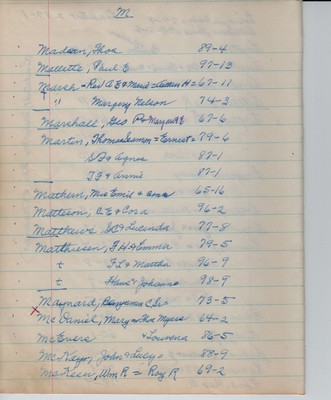 M
Madsen, Thos 89-4
Mallette, Paul E 97-13
Marsh - Rev A E & Marie = 67-11
" Margery Nelson 74-3
Marshall, Geo P & Margaret E 67-6
Martin, Thomas = Ernest = 79-6
& Agnes 87-1
& Annie 87-1
Mathern, Mrs Emil & 65-16
Matteson, & Cora 96-2
Matthews & Lucinda 77-8
Matthiesen, & Emma 79-5
" F L & Martha 96-9
" Hans & Johanna 98-9
Maynard, Benjamin C Sr 73-5
x McDaniel, Mary = Thos Myers 64-2
McEvers & Lovena 86-5
John & Lucy 88-9
McKeen, Wm R = Roy R 69-2